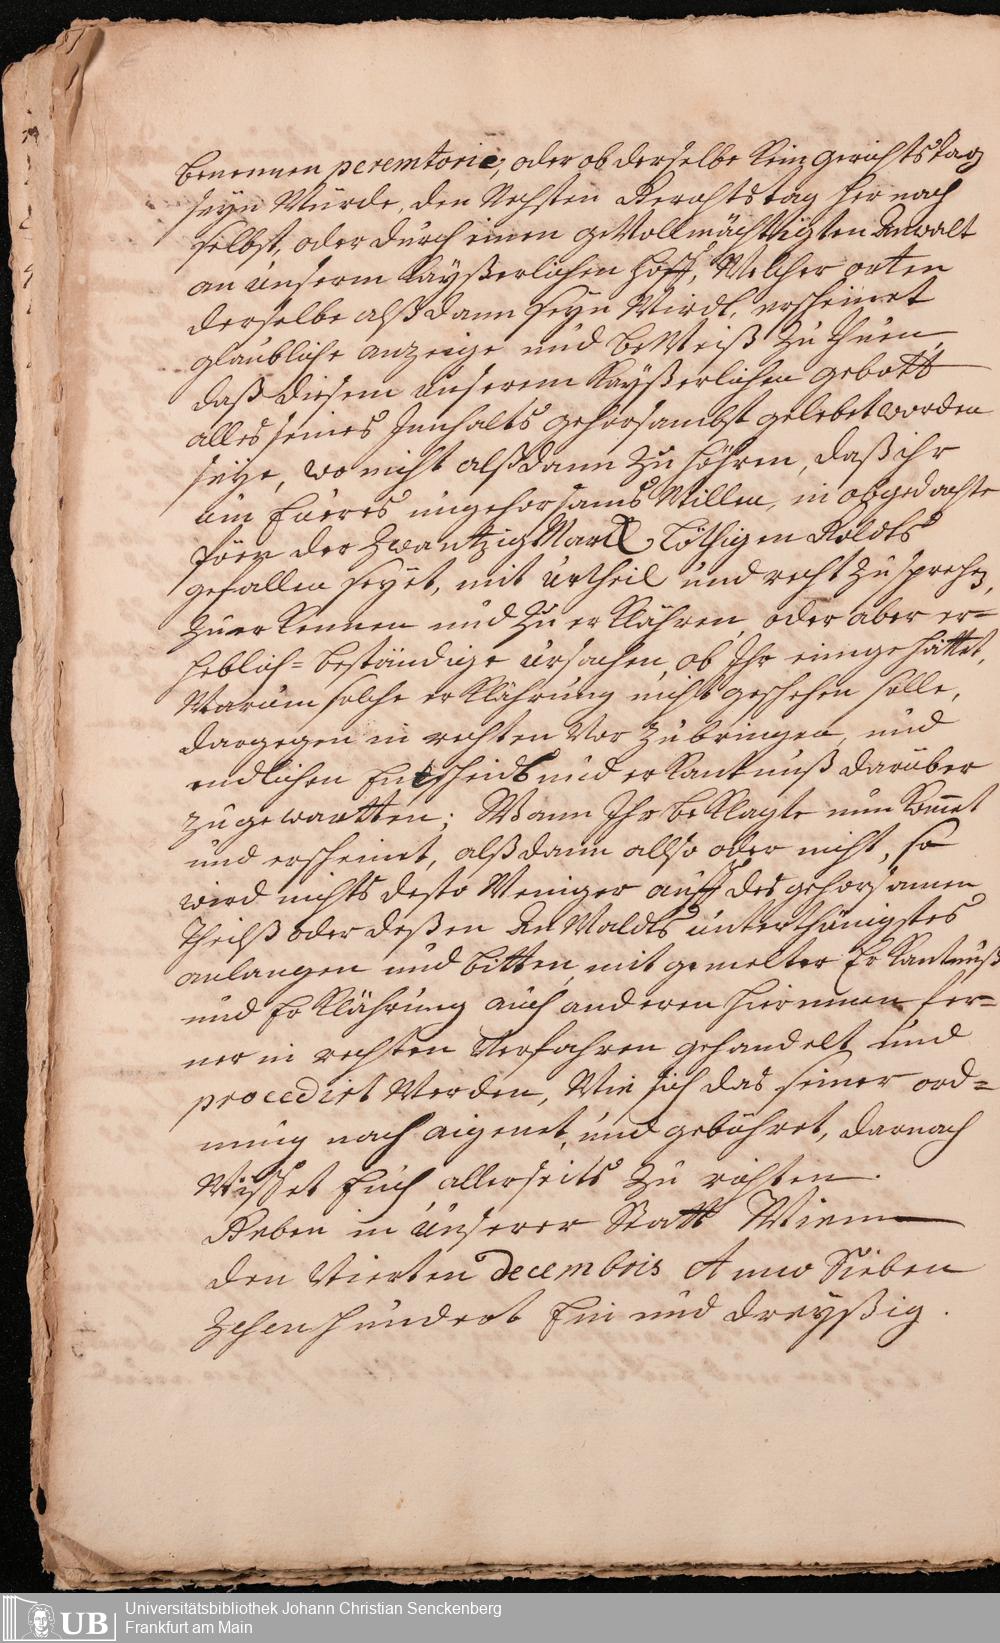 benennen peremtorie, oder ob derselbe kein gerichtstag
seyn würde, den Nehsten Gerichtstag hernach
selbst, oder durch einen gevollmächtigten Anwalt
an unserm Kayßerlichen hoff, Welcher orten
derselbe alßdann seyn Wirdt, erscheinet
glaubliche anzeige und beweiß zu thuen,
daß diesem unserem Kayßerlichen gebott
alles seines Innhalts gehorsambst gelebet worden
seye, wo nicht alßdann zu höhren, daß ihr
um Eueres ungehorsams Willen, in obgedachte
Pöen der zwantzig Marck Löthigen Goldts
gefallen seyet, mit urtheil und recht zu sprechen,
zu erkennen und zu erklähren, oder aber er=
heblich= beständige ursachen, ob Ihr einige hättet,
Warum solche erklährung nicht geschehen solle,
dargegen in rechten Vorzubringen, und
endlichen Entscheidt und erkantnuß darüber
zugewartten; Wann Ihr beklagte nun kommet
und erscheinet, alßdann allso oder nicht, so
wird nichts desto Weniger auff des gehorsamen
Theilß oder deßen AnWaldts unterthänigstes
anlangen und bitten, mit gemelter Erkantnuß
und Erklährung auch anderen hierinnen fer=
ner in rechten Verfahren gehandelt und
procedirt Werden, Wie sich das seiner ord=
nung nach aigenet, und gebühret, darnach
Wisset Euch allerseits zu richten.
Geben in unserer Statt Wienn
den Vierten Decembris Anno Sieben
zehenhundert Ein und dreyßig.
UB
Universitätsbibliothek Johann Christian Senckenberg
Frankfurt am Main